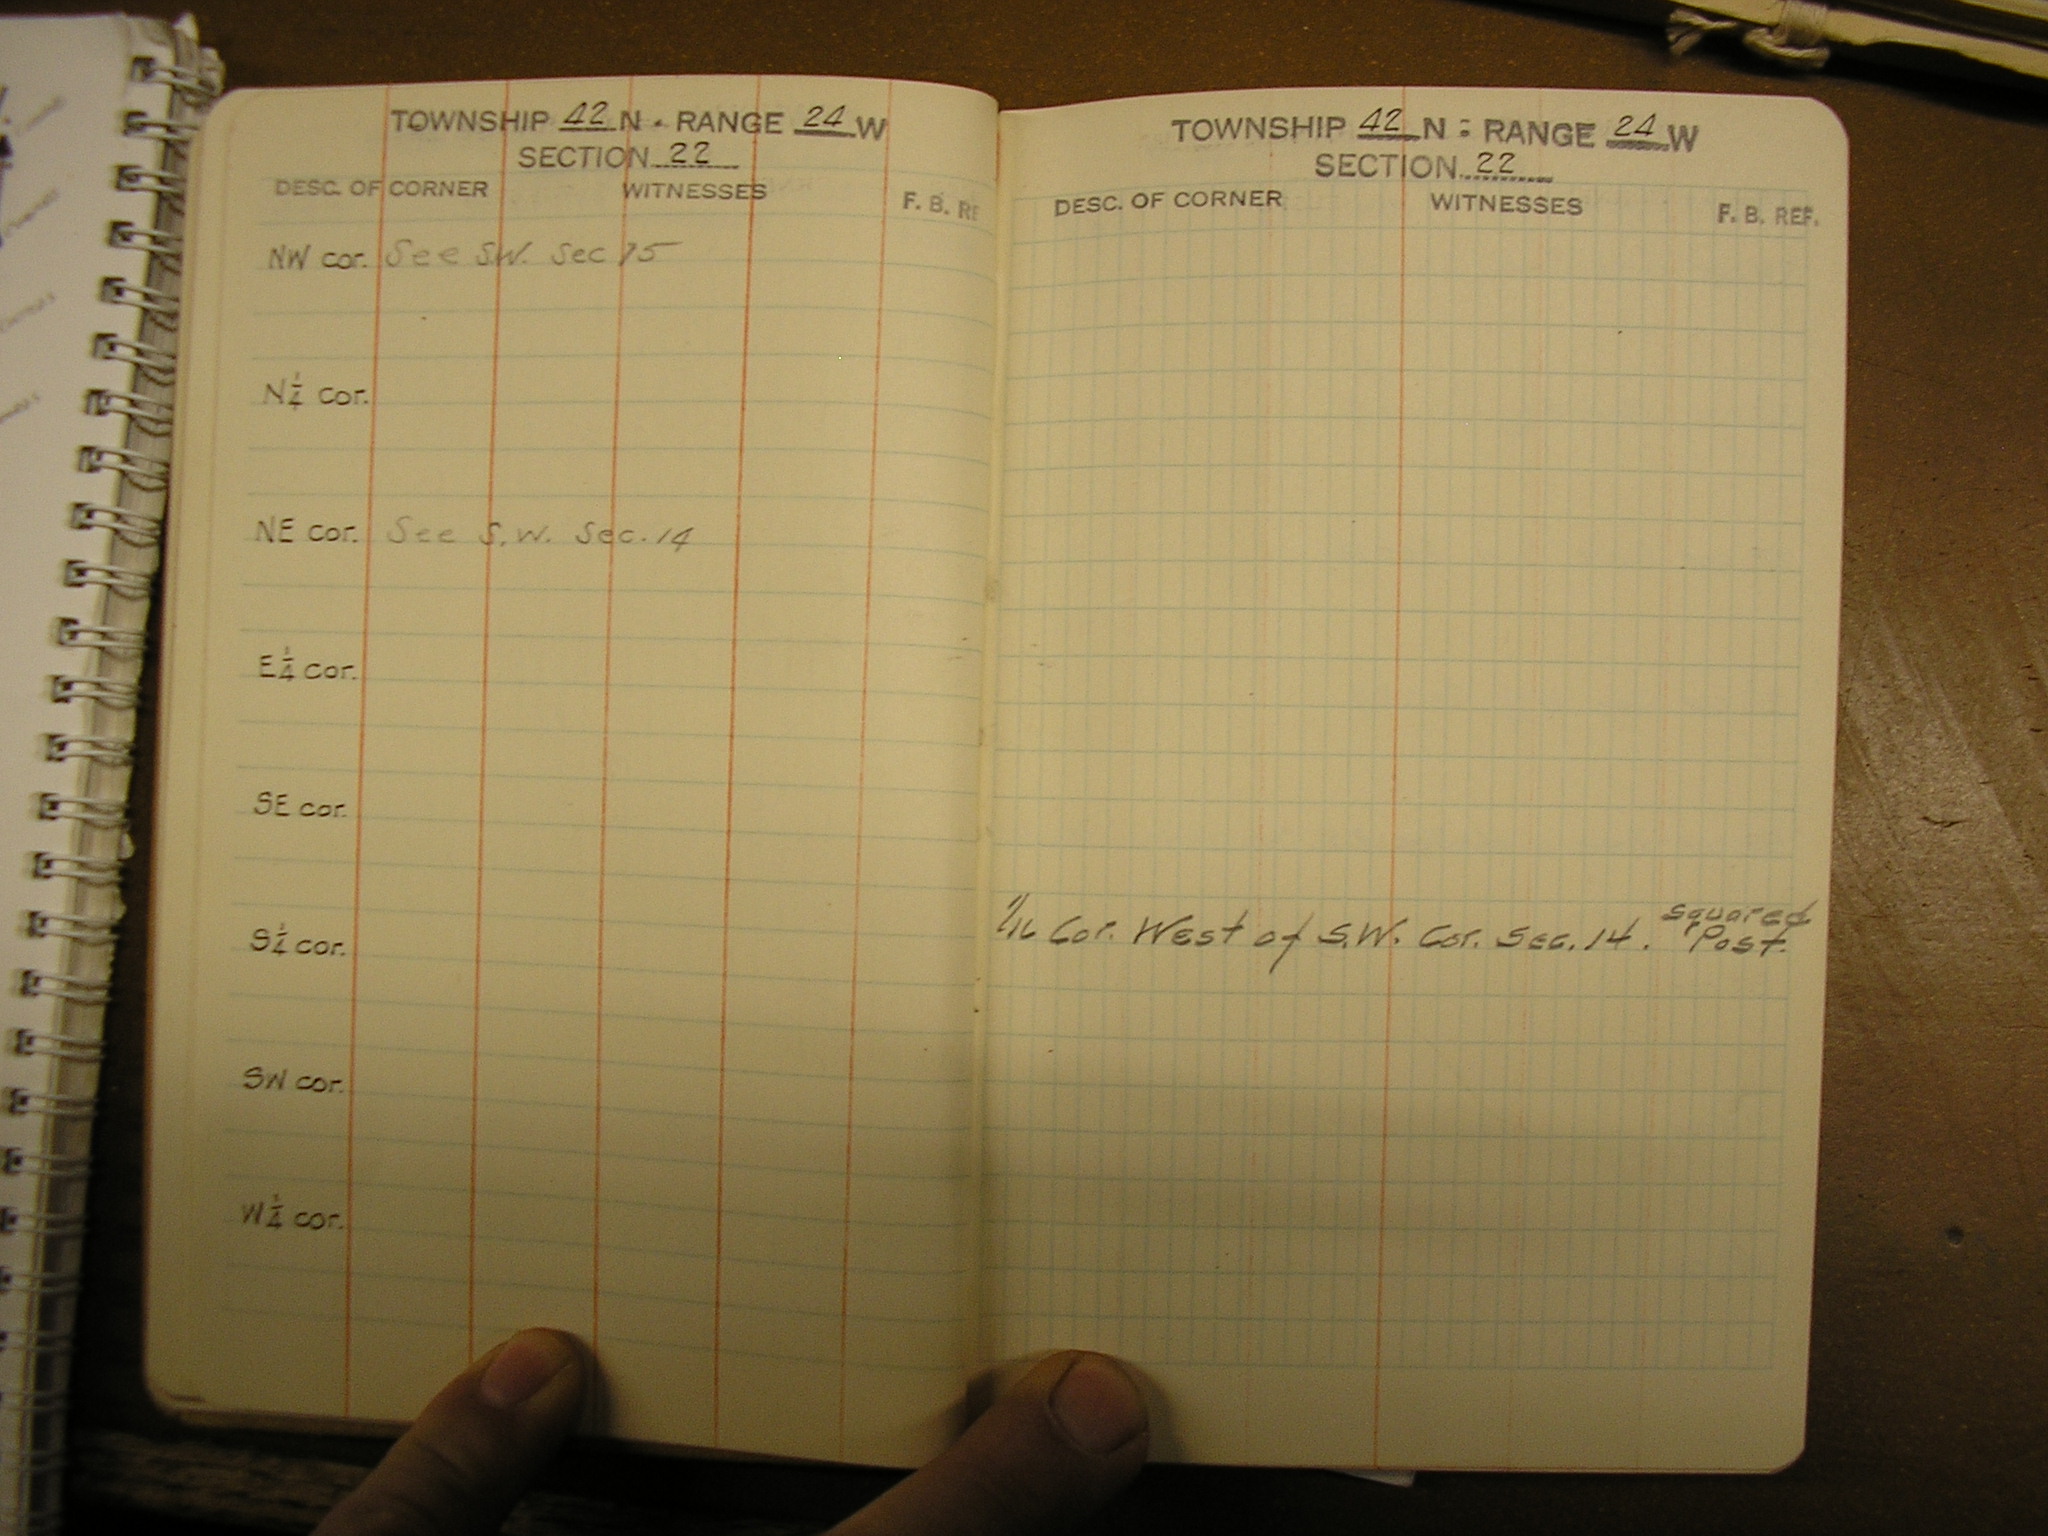 TOWNSHIP 42 N. RANGE 24 W
SECTION 22
DESC. OF CORNER WITNESSES F. B. RE
NW cor. See SW. Sec 15
N 1/4 cor.
NE cor. See S.W. Sec. 14
E 1/4 cor.
SE cor.
S 1/4 cor.
SW cor.
W 1/4 cor.
TOWNSHIP 42 N : RANGE 24 W
SECTION 22
DESC. OF CORNER WITNESSES F. B. REF.
1/16 Cor. West of S.W. Cor. Sec. 14. squared
Post.